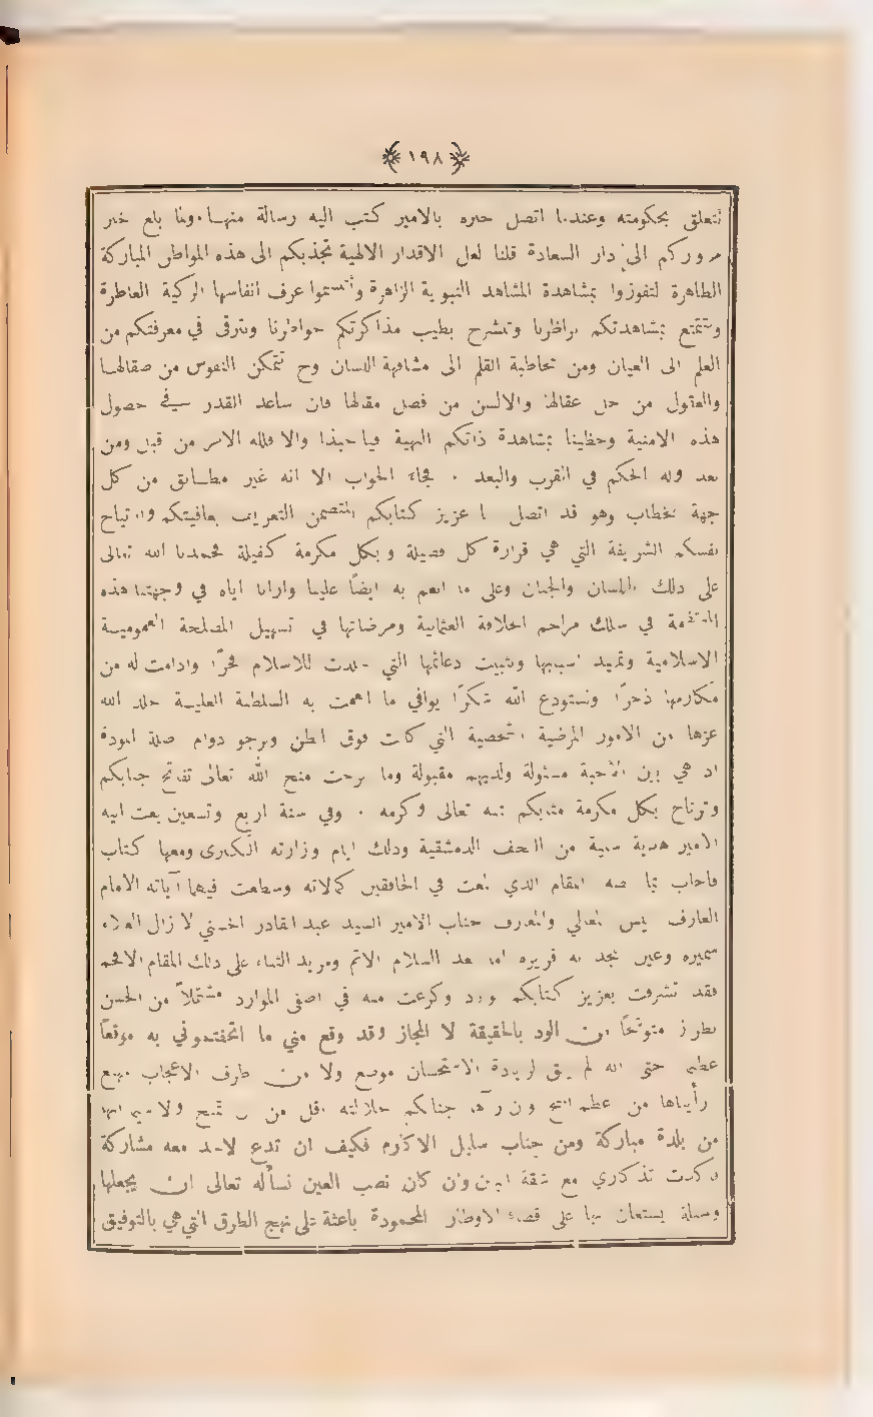 ﴿١٩٨﴾
تتعلق بحكومته وعندما اتصل خبره بالامير كتب اليه رسالة منها . ولما بلغ خبر
مروركم الى دار السعادة قلنا لعل الاقدار الالهية تجذبكم الى هذه المواطن المباركة
الطاهرة لتفوزوا بمشاهدة المشاهد النبوية الزاهرة وتنسموا عرف انفاسها الزكية العاطرة
وتتمتع بمشاهدتكم نواظرنا وتنشرح بطيب مذاكرتكم خواطرنا ونترقى في معرفتكم من
العلم الى العيان ومن مخاطبة القلم الى مشافهة اللسان وح تتمكن النفوس من صقالها
والعقول من حل عقالها والالسن من فصل مقالها فان ساعد القدر في حصول
هذه الامنية وحظينا بمشاهدة ذاتكم البهية فيا حبذا والا فلله الامر من قبل ومن
بعد وله الحكم في القرب والبعد . فجاء الجواب الا انه غير مطابق من كل
جهة للخطاب وهو قد اتصل بنا عزيز كتابكم المتضمن التعريف بعافيتكم وارتياح
نفسكم الشريفة التي هي قرارة كل فضيلة وبكل مكرمة كفيلة فحمدنا الله تعالى
على ذلك باللسان والجنان وعلى ما انعم به ايضًا علينا وارانا اياه في وجهتنا هذه
المنتظمة في سلك مراحم الخلافة العثمانية ومرضاتها في تسهيل المصلحة العمومية
الاسلامية وتمهيد اسبابها وتثبيت دعائمها التي خلدت للاسلام فخرًا وادامت له من
مكارمها ذخرًا ونستودع الله شكرًا يوافي ما اهمت به السلطنة العلية خلد الله
عزها من الامور المرضية الشخصية التي كانت فوق الظن ونرجو دوام صلة المودة
اذ هي بين الاحبة مسئولة ولديهم مقبولة وما برحت منح الله تعالى تفاتح جنابكم
وترتاح بكل مكرمة منابكم بمنه تعالى وكرمه . وفي سنة اربع وتسعين بعث اليه
الامير هدية سنية من التحف الدمشقية وذلك ايام وزارته الكبرى ومعها كتاب
فاجاب بما نصه المقام الذي لمعت في الخافقين كمالاته وسطعت فيهما آياته الامام
العارف المعالي والمعارف جناب الامير السيد عبد القادر الحسني لا زال العلاء
سميره وعين المجد به قريره اما بعد السلام الاتم ومزيد الثناء على ذلك المقام الافخم
فقد تشرفت بعزيز كتابكم وورد وكرعت منه في اصفى الموارد مشتملاً من الحسن
بطراز متوشحًا من الود بالحقيقة لا المجاز وقد وقع مني ما اتحفتموني به موقعًا
عظيما حتى انه لم يبق لزيادة الاستحسان موضع ولا من طرف الاعجاب منزع
رأيناها من عظم المنح وان رآها جنابكم لجلالته اقل من ولا سيما انها
من بلدة مباركة ومن جناب سليل الاكارم فكيف ان تدع لاحد معه مشاركة
تذكاري مع شقة البين وان كان نصب العين نسأله تعالى ان يجعلها
وسيلة يستعان بها على قضاء الاوطار المحمودة باعثة على نهج الطرق التي هي بالتوفيق